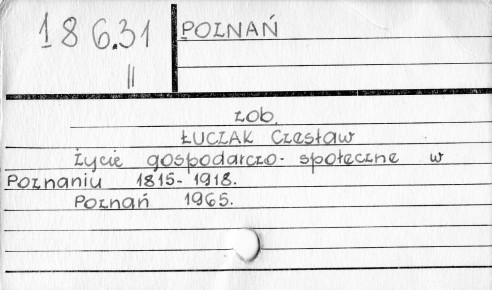 186.31
II
POZNAŃ
zob.
ŁUCZAK Czesław
Życie gospodarczo-społeczne w
Poznaniu 1815-1918.
Poznań 1965.